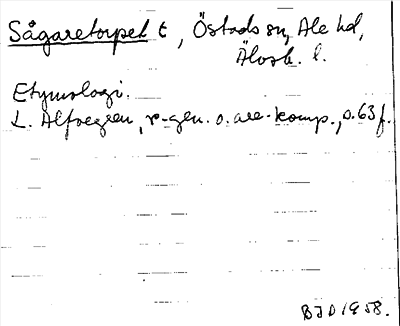 Sågaretorpet t, Östads sn, Ale hd,
Älvsb. l.
Etymologi.
L. Alfvegren, r-gen. o. are-komp., s. 63 f.
BJD 1958.